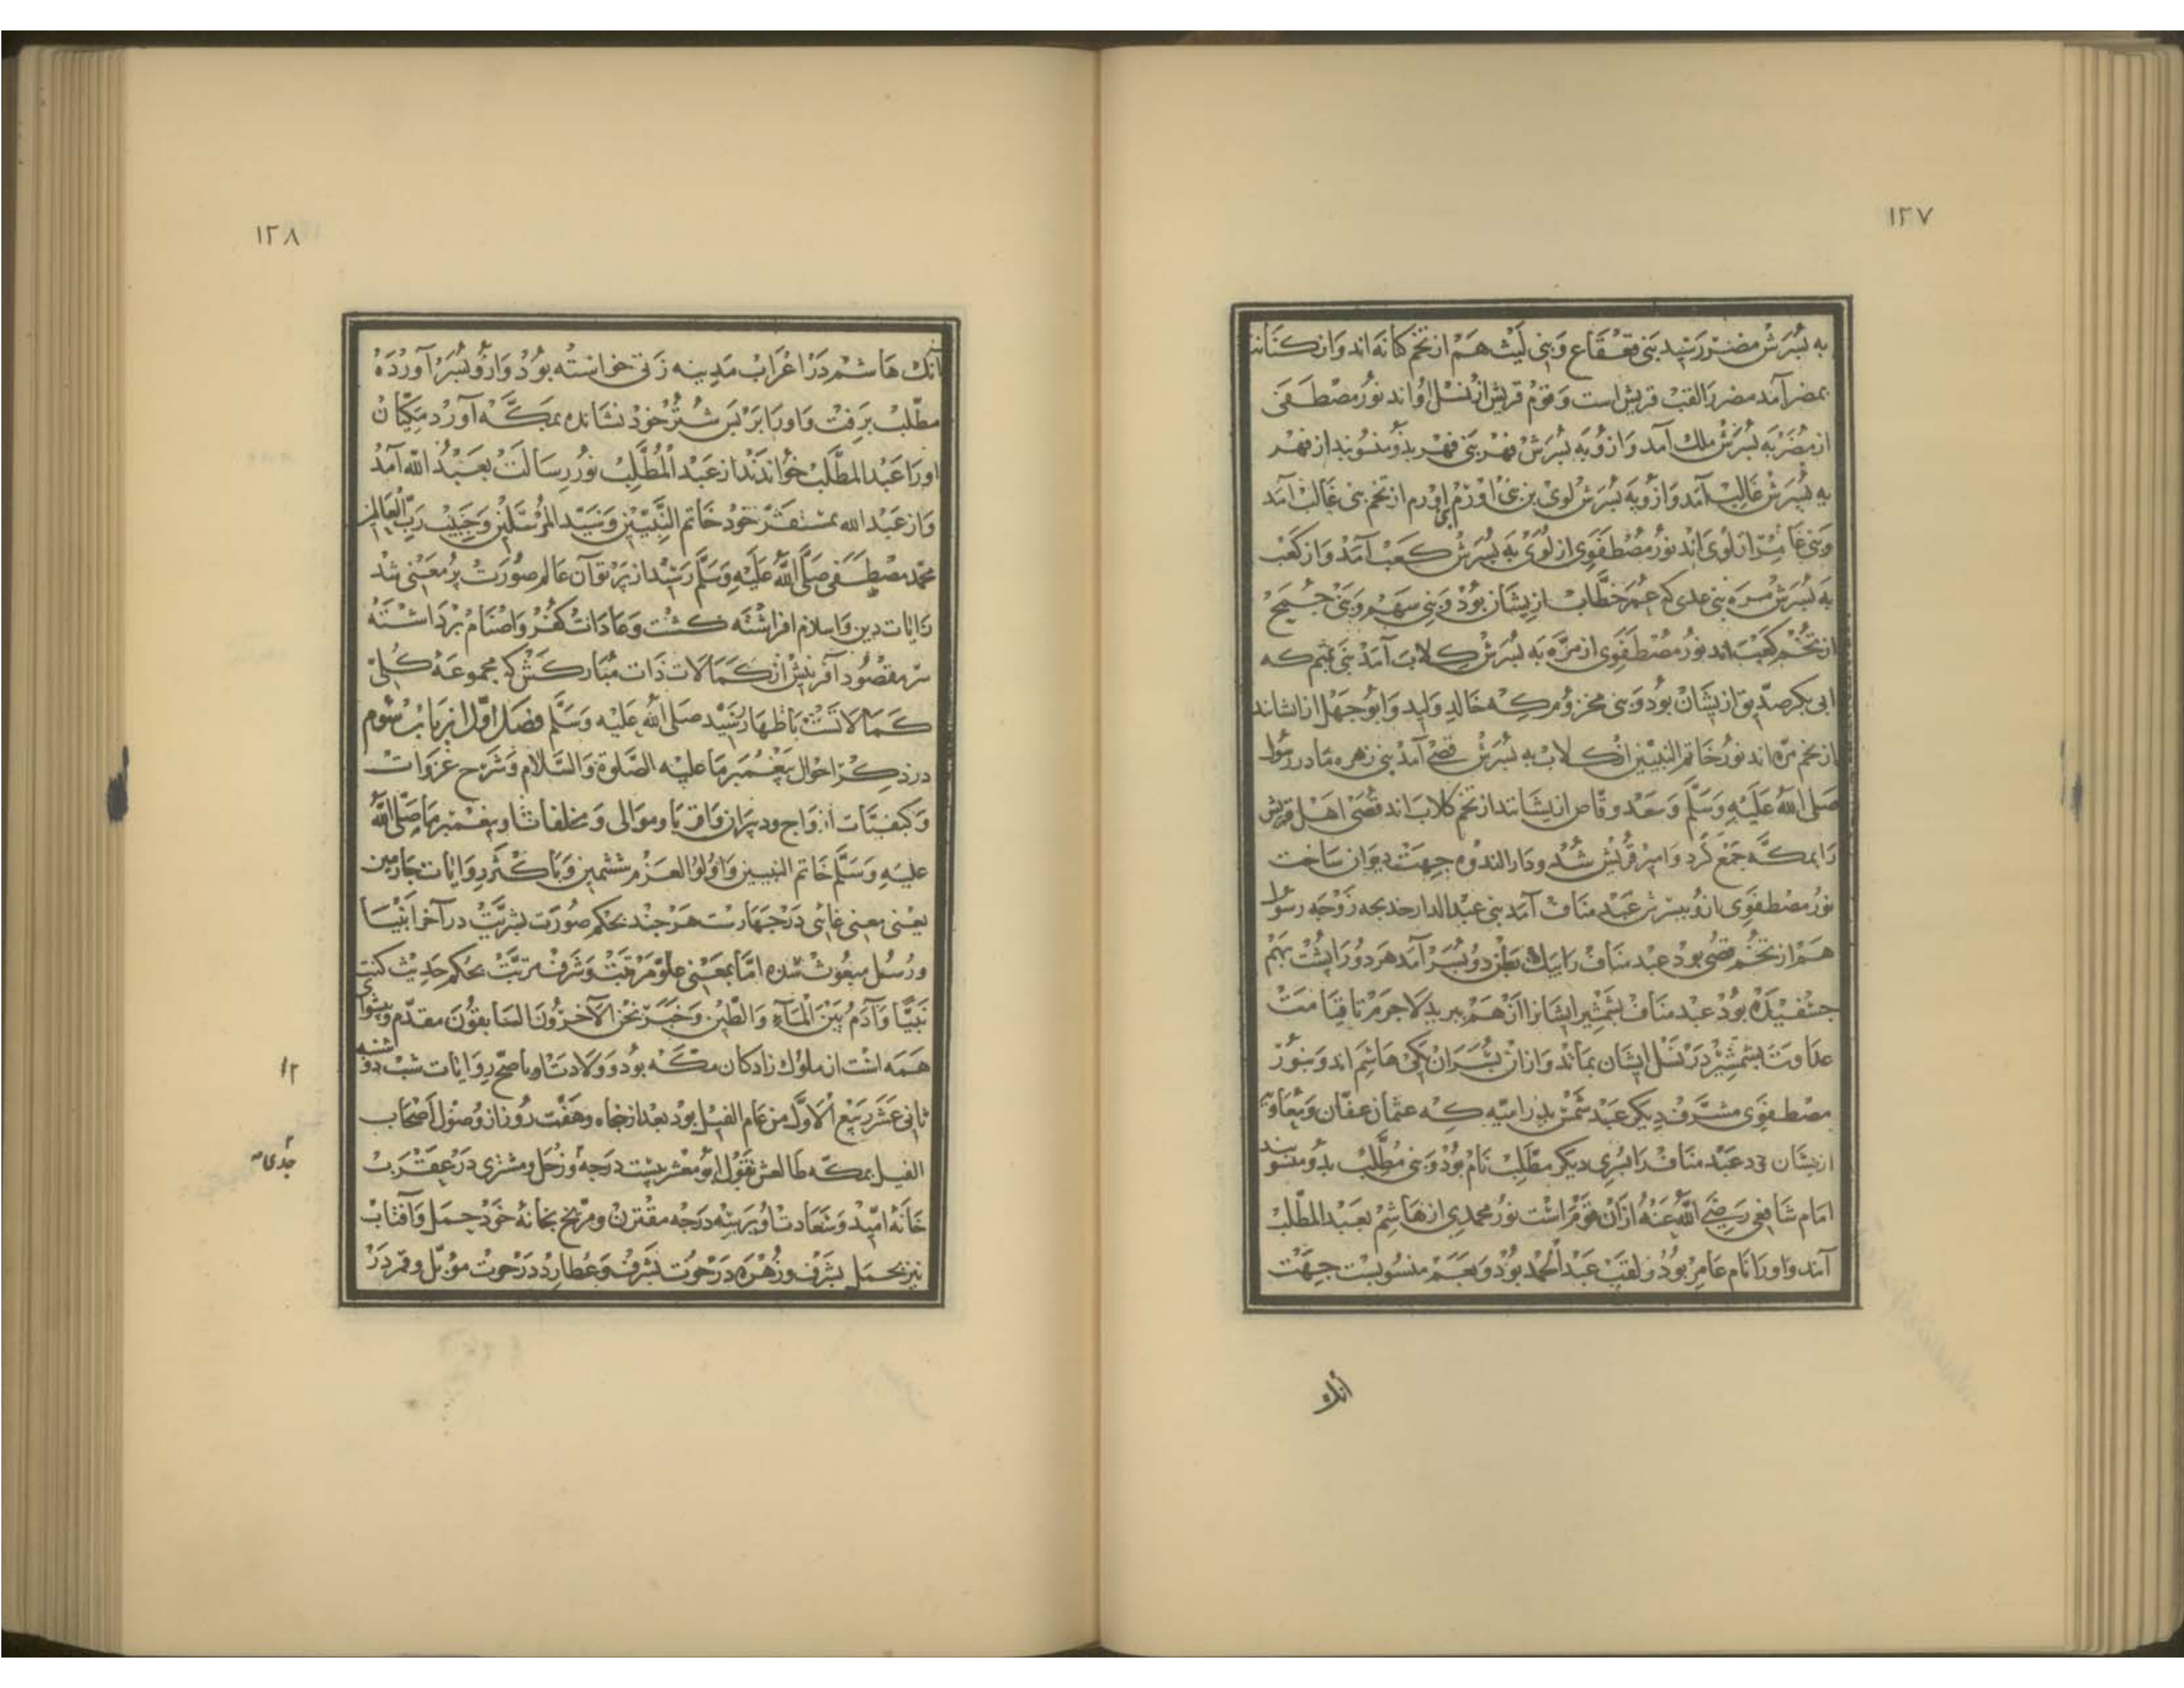 ۱۳۷
به پُسَرش مضر رسید بنی قعقاع وَبنی لَیث هَم از تخم کنانه‌اند وَاز کنانه
بمضر آمد مضر را لقب قریش است وَقومِ قریش از نسل اوُاند نورُ مصطفی
از مُضَر به پُسَرش ملك آمد وَازوُ به پُسَرش فهر بنی فهر بدو منسوبند از فهر
به پُسَرش غالِب آمد وَازوُ به پُسَرش لوی بن بنی اورَم اورم از تخم بنی غالب آمد
وبنی عامِر از لوی اند نورُ مصطفوی از لوی به پُسَرش کعب آمد وَاز کعب
به پُسَرش مره بنی عدی که عُمَر خطّاب ازیشان بوُد وَبنی سهم وَبنی جمح
از تخم کعب اند نورُ مصطفوی از مرّه به پُسَرش کلاب آمد بنی تیم که
ابی بکر صدّیق ازیشان بوُد وَبنی مخزوم که خالد ولید وَابو جهل ازیشاند
از تخم مرّه اند نورُ خاتم النبیّین از کلاب به پُسَرش قصی آمد بنی زهره مادر رسُول
صلی الله علیه وَسلّم وَسعد وقاص ازیشانند از تخم کلاب اند قصی اهل قریش
را بمکّه جمع کرد وَامیر قریش شد ودار الندوه جهت دیوان ساخت
نورُ مصطفوی ازو بپسرش عبد مناف آمد بنی عبد الدار خدیجه زوجه رسول
هم از تخم قصی بود عبد مناف را بیك بطن دو پُسَر آمد هر دو را پشت بهم
جفسیده بوُد عبد مناف بشمشیر ایشانرا از هم ببرید لاجرم تا قیامت
عداوت بشمشیر در نسل ایشان بماند وَازان پُسَران یکی هاشم اند وَبنور
مصطفوی مشرّف دیکر عبد شمس پدر امیّه که عثمان عفّان وَمعاویه
ازیشان‌ند عبد مناف را پسری دیکر مطّلب نام بوُد وَبنی مُطّلب بدو منسوبند
امام شافعی رضی الله عنهُ ازان قوم است نورُ محمدی از هاشم بعبد المطّلب
آمد وَاورا نام عامر بوُد وَلقب عبد الحمد بوُد وَبعم منسوبست جهت
آنك
۱۳۸
آنك هاشم در اعراب مدینه زنی خواسته بوُد وَازوُ پُسَر آورده
مطّلب برفت وَاورا بر پس شتر خود نشانده بمکّه آورد مکیان
اورا عبد المطّلب خواندند از عبد المُطّلب نورُ رسالت بعبد الله آمد
وَاز عبد الله بمستقر خود خاتم النّبییّن وَسیّد المرسلین وَحبیب ربّ العالمین
محمّد مصطفی صلّی اللّه علیه وَسلّم رسید از پرتو آن عالم صورت پُر معنی شد
رایات دین وَاسلام افراشته کشت وَعادات کفر وَاصنام برداشته
سرّ مقصود آفرینش از کمالات ذات مبارکش که مجموعهٔ کُلّ
کمالاتست باظهار رسید صلی الله علیه وسلّم فصل اوّل از باب سُوم
در ذکر احوال پیغمبر ما علیه الصّلوة والسّلام وَشرح غزوات
وَکیفیّات ازواج ودبیران واقربا وموالی وَمخلفات او پیغمبر ما صلّی اللّه
علیه وَسلّم خاتم النبیین وَاولوُ العزم ششمین وَباکثر روایات چهارمین
یعنی معنی غائی در چهارست هر چند بحکم صورت بشریّت در آخر انبیا
ورُسُل مبعوث شده امّا بمعنی علو مرتبت وَشرف مرتّبت بحکم حدیث کنت
نبیّا وَآدم بین المآءِ وَالطّین وَخبر نحن الآخرون السابقون مقدّم وپیشوای
همه است از ملوك زادکان مکّه بود وَولادتش باصحّ روایات شب دوشنبه
ثانی عشر ربیع الاوّل من عام الفیل بود بعد از پنجاه وهفت روز از وصُول اصحاب
الفیل بمکّه طالعش بقول ابو معشر بیست درجه وَزحل ومشتری در عقرب
خانهٔ امّید وَسعادت او بر سه درجه مقترن ومرّیخ بخانهٔ خود حمل وَآفتاب
نیز بحمل بشرف وزُهره در حوت بشرف وَعطارد در حوت مؤبّل وقمر در
۱۲
جدی ص